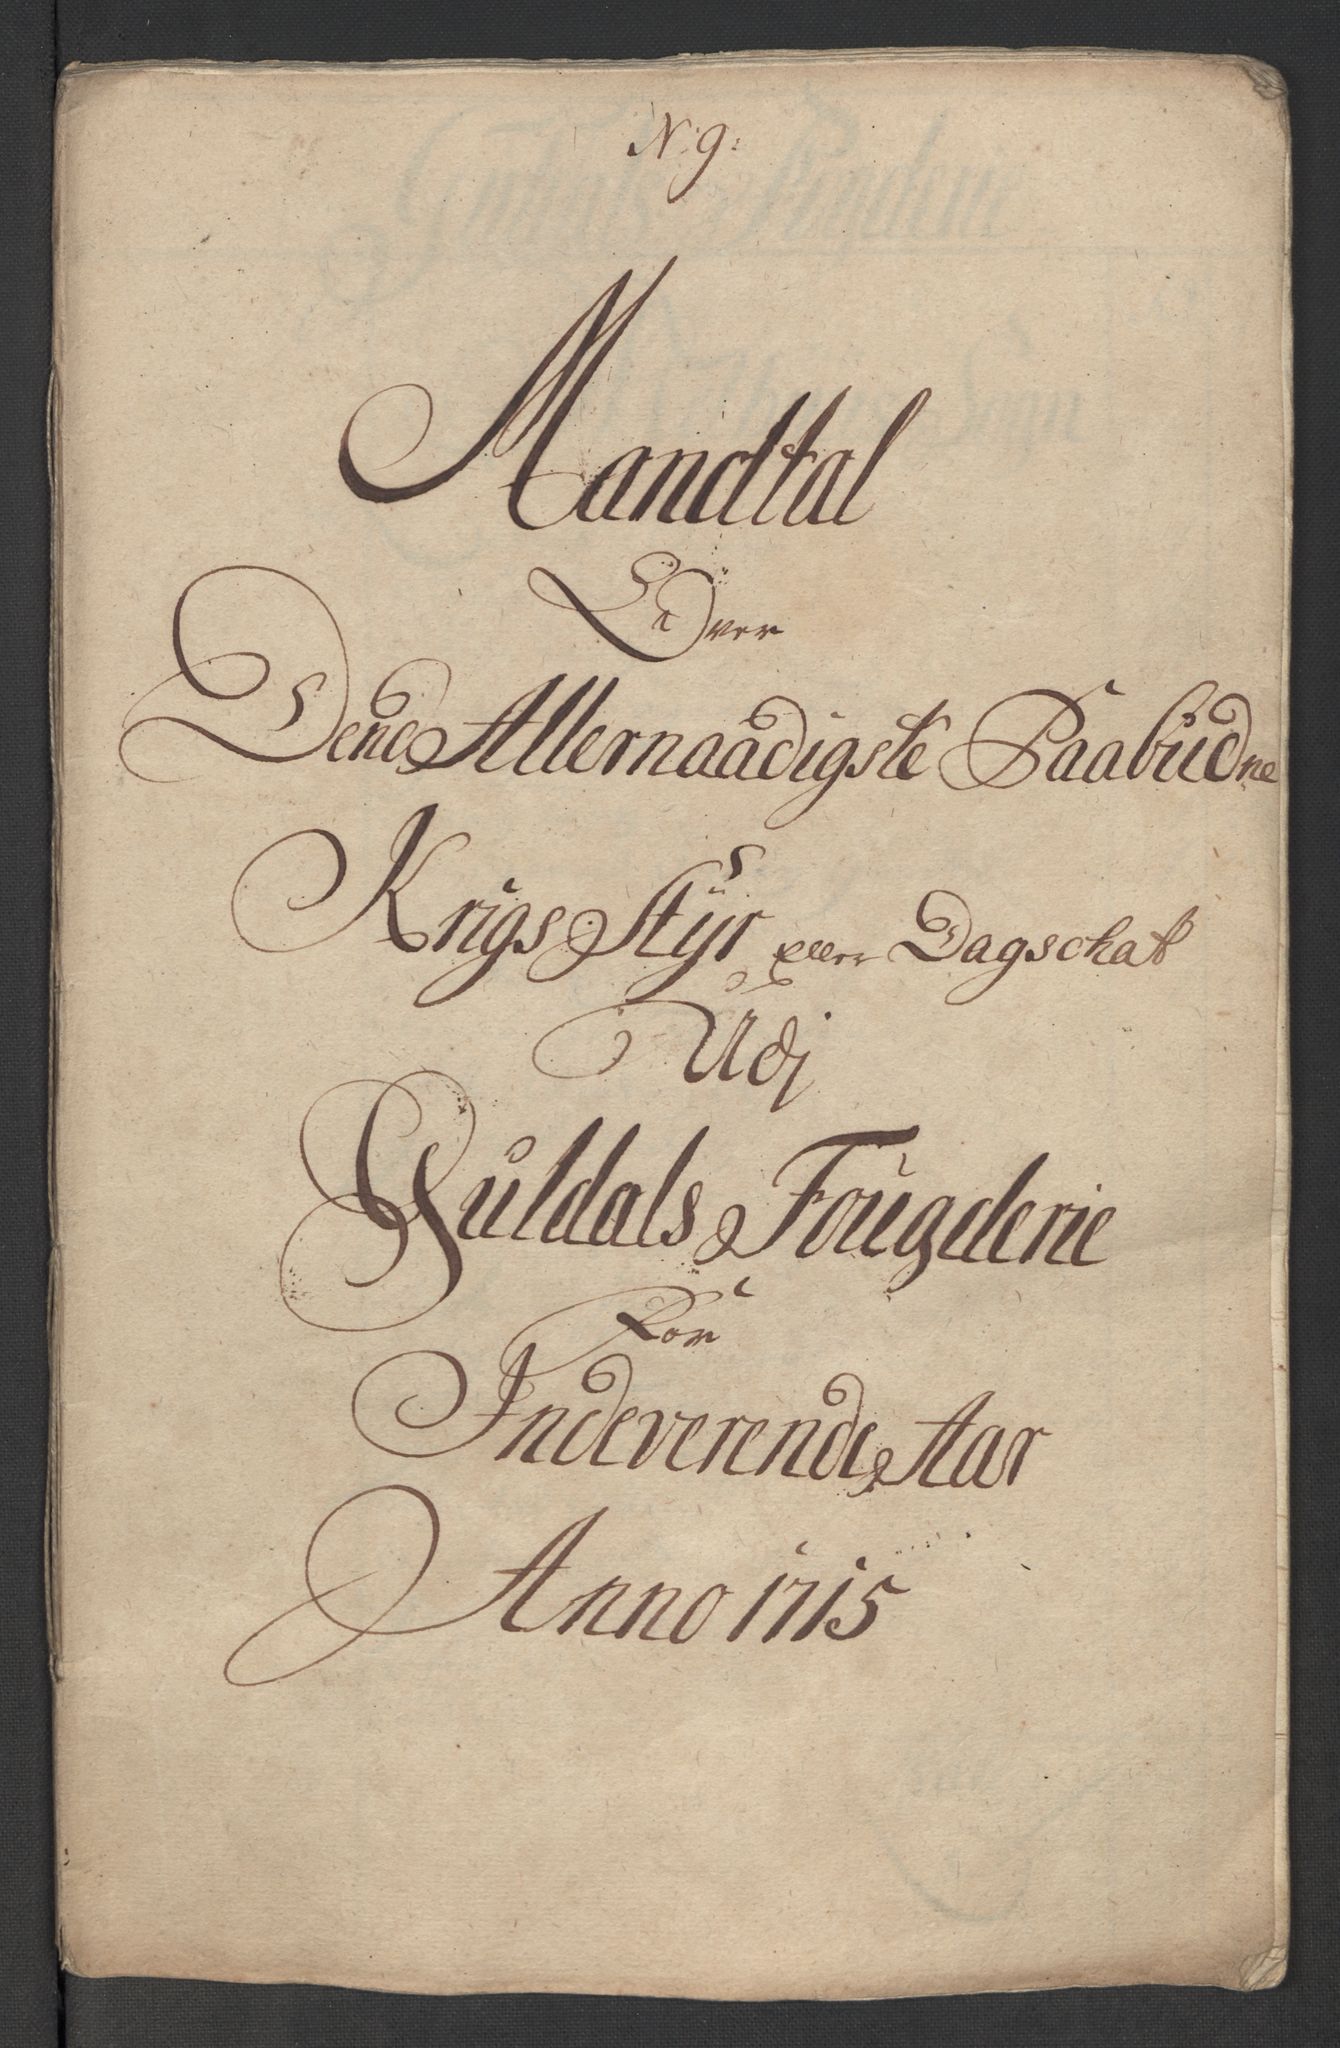 N: 9:
Mandtal
Over
Dend Allernaadigste Paabudne
Krigs Styr eller Dagschat
Udj
Guldals Fougderie
For
Indeverende Aar
Anno 1715